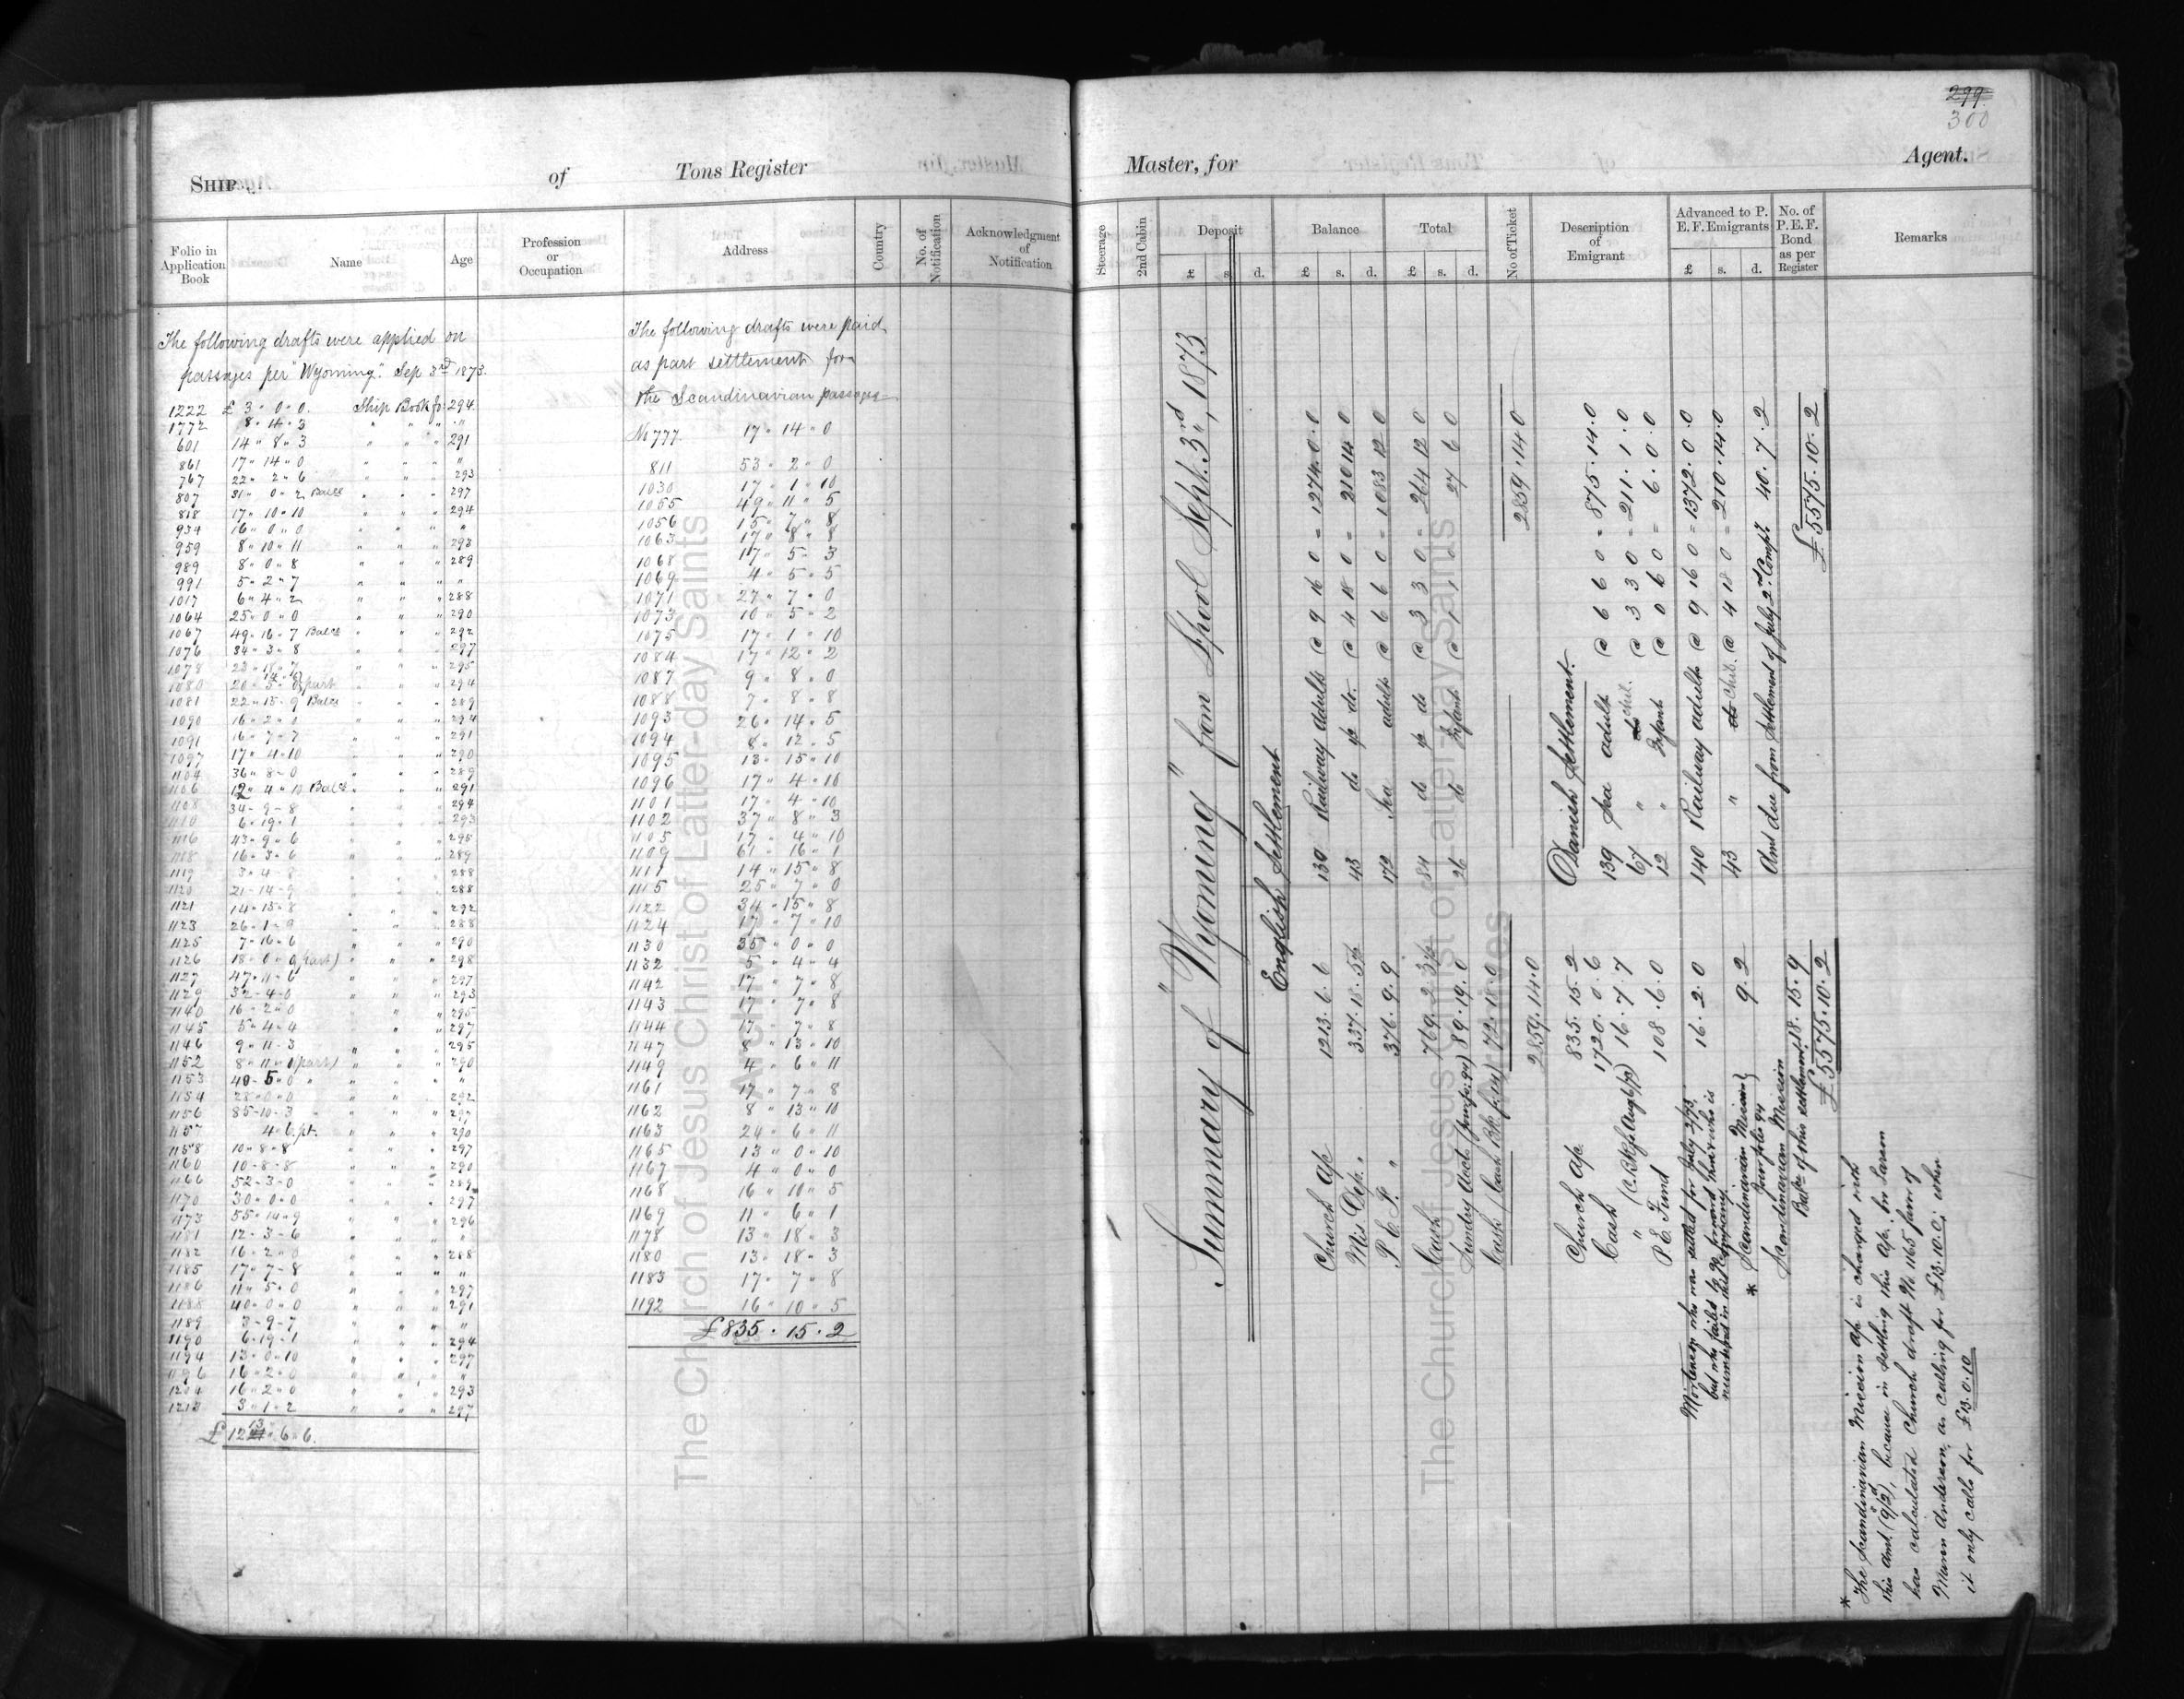 299
300
SHIP of Tons Register
Folio in Application Book
Name
Age
Profession or Occupation
Address
Country
No. of Notification
Acknowledgment of Notification
The following drafts were applied on
passages per "Wyoming". Sep 3rd 1873.
1222 £ 3 " 0 " 0. Ship Book fo: 294
1772 8 " 14 " 3 " " " "
601 14 " 8 " 3 " " " 291
861 17 " 14 " 0 " " " "
767 22 " 2 " 6 " " " 293
807 31 " 0 " 2 Balce " " " 297
818 17 " 10 " 10 " " " 294
934 16 " 0 " 0 " " " "
959 8 " 10 " 11 " " " 293
989 8 " 0 " 8 " " " 289
991 5 " 2 " 7 " " " "
1017 6 " 4 " 2 " " " 288
1064 25 " 0 " 0 " " " 290
1067 49 " 16 " 7 Balce " " " 292
1076 34 " 3 " 8 " " " 297
1078 23 " 18 " 7 " " " 295
1080 part " " " 294
1081 22 " 15 " 9 Balce " " " 289
1090 16 " 2 " 0 " " " 294
1091 16 " 7 " 7 " " " 291
1097 17 " 4 " 10 " " " 290
1104 36 " 8 " 0 " " " 289
1106 12 " 4 " 10 Balce " " " 291
1108 34 " 9 " 8 " " " 294
1110 6 " 19 " 1 " " " 293
1116 43 " 9 " 6 " " " 295
1118 16 " 3 " 6 " " " 289
1119 3 " 4 " 8 " " " 288
1120 21 " 14 " 9 " " " 288
1121 14 " 15 " 8 " " " 292
1123 26 " 1 " 9 " " " 288
1125 7 " 16 " 6 " " " 290
1126 18 " 0 " 9 (part) " " " 298
1127 47 " 11 " 6 " " " 297
1129 32 " 4 " 0 " " " 293
1140 16 " 2 " 0 " " " 295
1145 5 " 4 " 4 " " " 297
1146 9 " 11 " 3 " " " 295
1152 8 " 11 " 0 (part) " " " 290
1153 40 " 5 " 0 " " " " "
1154 28 " 0 " 0 " " " 292
1156 85 " 10 " 3 " " " 297
1157 4 " 6 pt. " " " 290
1158 10 " 8 " 8 " " " 297
1160 10 " 8 " 8 " " " 290
1166 52 " 3 " 0 " " " 289
1170 30 " 0 " 0 " " " 297
1173 55 " 14 " 9 " " " 296
1181 12 " 3 " 6 " " " "
1182 16 " 2 " 0 " " " 288
1185 17 " 7 " 8 " " " "
1186 11 " 5 " 0 " " " 297
1188 40 " 0 " 0 " " " 291
1189 3 " 9 " 7 " " " "
1190 6 " 19 " 1 " " " 294
1194 13 " 0 " 10 " " " 297
1196 16 " 2 " 0 " " " "
1204 16 " 2 " 0 " " " 293
1212 3 " 1 " 2 " " " 297
£ 1213 " 6 " 6.
The following drafts were paid
as part settlement for
the Scandinavian passages
No 777. 17 " 14 " 0
811 53 " 2 " 0
1030 17 " 1 " 10
1055 49 " 11 " 5
1056 15 " 7 " 8
1063 17 " 8 " 8
1068 17 " 5 " 3
1069 4 " 5 " 5
1071 27 " 7 " 0
1073 10 " 5 " 2
1075 17 " 1 " 10
1084 17 " 12 " 2
1087 9 " 8 " 0
1088 7 " 8 " 8
1093 26 " 14 " 5
1094 8 " 12 " 5
1095 13 " 15 " 10
1096 17 " 4 " 10
1101 17 " 4 " 10
1102 37 " 8 " 3
1105 17 " 4 " 10
1109 61 " 16 " 1
1111 14 " 15 " 8
1115 25 " 7 " 0
1122 34 " 15 " 8
1124 17 " 7 " 10
1130 35 " 0 " 0
1132 5 " 4 " 4
1142 17 " 7 " 8
1143 17 " 7 " 8
1144 17 " 7 " 8
1147 8 " 13 " 10
1149 4 " 6 " 11
1161 17 " 7 " 8
1162 8 " 13 " 10
1163 24 " 6 " 11
1165 13 " 0 " 10
1167 4 " 0 " 0
1168 16 " 10 " 5
1169 11 " 6 " 1
1178 13 " 18 " 3
1180 13 " 18 " 3
1183 17 " 7 " 8
1192 16 " 10 " 5
£835 . 15 . 2
Master, for Agent.
Steerage
2nd Cabin
Deposit £ s. d.
Balance £ s. d.
Total £ s. d.
No of Ticket
Description of Emigrant
Advanced to P. E. F. Emigrants £ s. d.
No. of P.E.F. Bond as per Register
Remarks
Summary of "Wyoming" from L'pool Sept. 3rd, 1873
English Settlement
Church a/c 1213 . 6 . 6 130 Railway adults @ 9 16 0 = 1274 . 0 . 0
Mis Dep. " 337 . 18 . 5½ 43 do yp do. @ 4 18 0 = 210 14 0
P. E. F. " 376 . 9 . 9 172 Sea adults @ 6 6 0 = 1083 12 0
Cash 769 . 2 . 3½ 84 do yp do @ 3 3 0 = 264 12 0
Sundry Acct. 89 . 19 . 0 26 do Infants @ 27 6 0
Cash (Cash Bk fo 14) 72 . 18 . 0
2859 . 14 . 0 2859 . 14 0
Danish Settlement.
Church a/c. 835 . 15 . 2 139 Sea adults @ 6 6 0 = 875 . 14 . 0
Cash 1720 . 0 . 6 67 " do chil. @ 3 3 0 = 211 . 1 . 0
" 16 . 7 . 7 12 " Infants @ 0 6 0 = 6 . 0 . 0
P. E. Fund 108 . 6 . 0
140 Railway adults @ 9 16 0 = 1372 . 0 0
Mortensen who was settled for July 2/73.
but who failed to go forward then & who is
numbered in this company 16 . 2 . 0
43 " do chil. @ 4 18 0 = 210 . 14 . 0
* Scandinavian Mission 9 . 2
Amt due from settlement of July 2nd Compy. 40 . 7 . 2
Scandinavian Mission
Balce of this settlement 18 . 15 . 9
£5575 . 10 . 2 £5575 . 10 . 2
* The Scandinavian Mission a/c is charged with
this amt (9/2), because in settling this a/c. Br Larsen
has calculated Church draft No 1165 favor of
Maren Anderson, as calling for £13.10.0; when
it only calls for £13.0.10
The Church of Jesus Christ of Latter-day Saints
Archives
The Church of Jesus Christ of Latter-day Saints
Archives